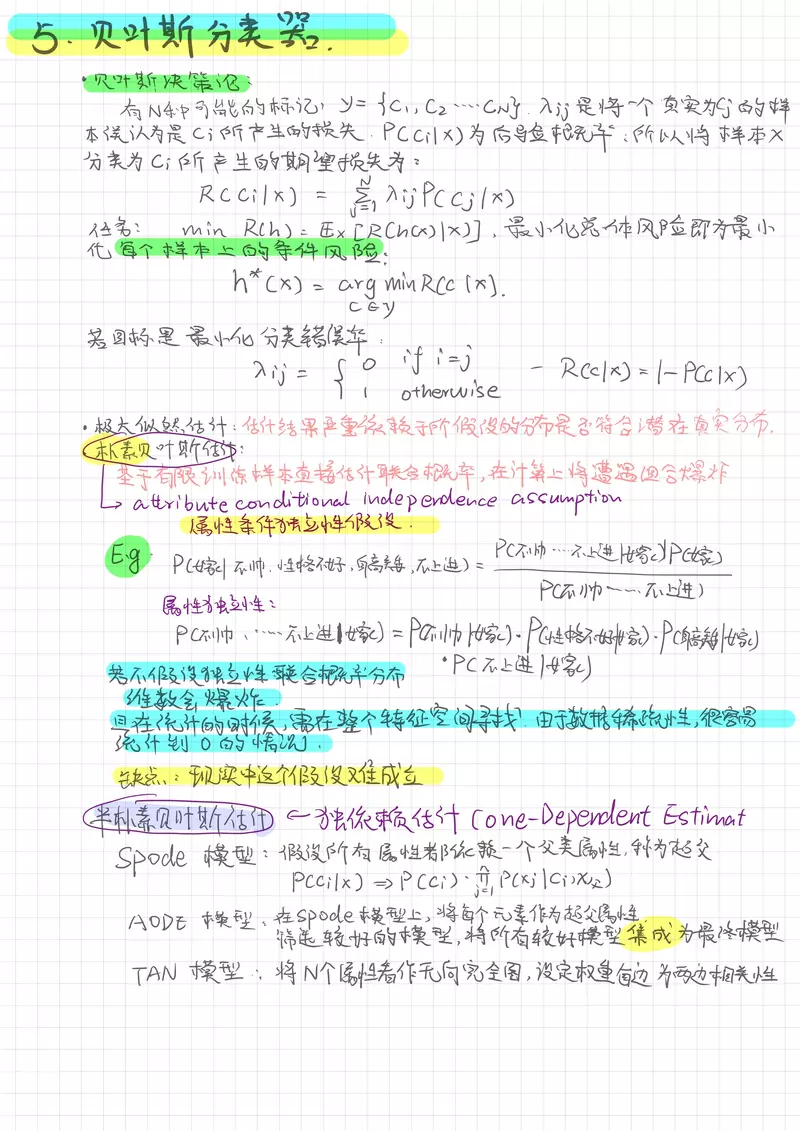 5. 贝叶斯分类器.
· 贝叶斯决策论:
有N种可能的标记, y = {C1, C2 ····· CN}. λij是将一个真实为Cj的样
本误认为是Ci所产生的损失. P(Ci|x)为后验概率, 所以将样本x
分类为Ci所产生的期望损失为:
R(Ci|x) = Σ_{j=1}^{N} λij P(Cj|x)
任务: min R(h) = Ex[R(h(x)|x)], 最小化总体风险即为最小
化每个样本上的条件风险:
h*(x) = arg min R(C|x).
C∈y
若目标是最小化分类错误率:
λij = { 0 if i=j
1 otherwise
- R(C|x) = 1-P(C|x)
· 极大似然估计: 估计结果严重依赖于所假设的分布是否符合潜在真实分布.
朴素贝叶斯估计:
基于有限训练样本直接估计联合概率, 在计算上将遭遇组合爆炸
↳ attribute conditional independence assumption
属性条件独立性假设.
E.g P(嫁|不帅, 性格不好, 身高矮, 不上进) = P(不帅 ···· 不上进|嫁)P(嫁) / P(不帅 ···· 不上进)
属性独立性:
P(不帅, ····· 不上进|嫁) = P(不帅|嫁)·P(性格不好|嫁)·P(身高矮|嫁)
·P(不上进|嫁)
若不假设独立性 联合概率分布
维数会爆炸.
且在统计的时候, 需在整个特征空间寻找. 由于数据稀疏性, 很容易
统计到0的情况.
缺点: 现实中这个假设难成立
半朴素贝叶斯估计 ← 独依赖估计 (one-Dependent Estimat
Spode 模型: 假设所有属性都依赖一个父类属性, 称为超父
P(Ci|x) ⇒ P(Ci)·Π_{j=1}^{n} P(xj|Ci,x父)
AODE 模型: 在spode模型上, 将每个元素作为超父属性.
筛选较好的模型, 将所有较好模型集成为最终模型
TAN 模型: 将N个属性看作无向完全图, 设定权重 边为两边相关性